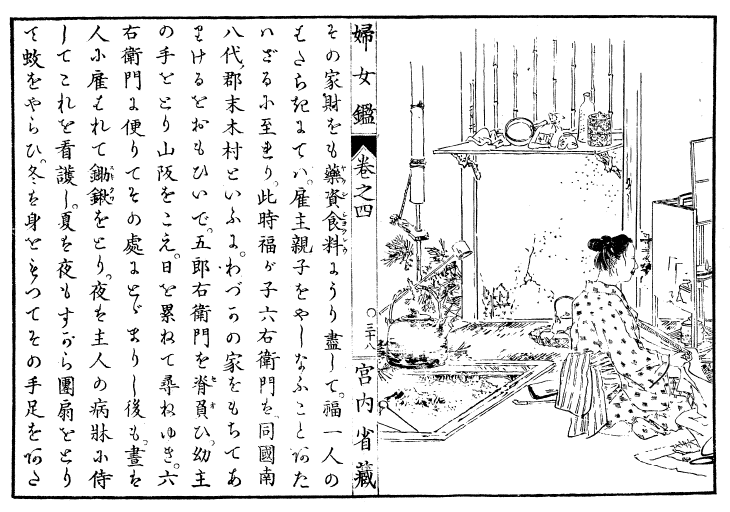 婦女鑑 卷之四 ○三十八 宮内省藏
その家財をも藥資食料にうり盡して。福一人の
はたらきにては。雇主親子をやしなふことあた
はざるに至れり。此時福が子六右衛門は同國南
八代郡末木村といふに。わづかの家をもちてあ
りけるをおもひいで。五郎右衛門を脊負ひ。幼主
の手をとり山阪をこえ。日を累ねて尋ねゆき。六
右衛門に便りてその處にとゞまりし後も。晝は
人に雇はれて鋤鍬をとり。夜は主人の病牀に侍
してこれを看護し。夏は夜もすがら團扇をとり
て蚊をやらひ。冬は身をもつてその手足をあた